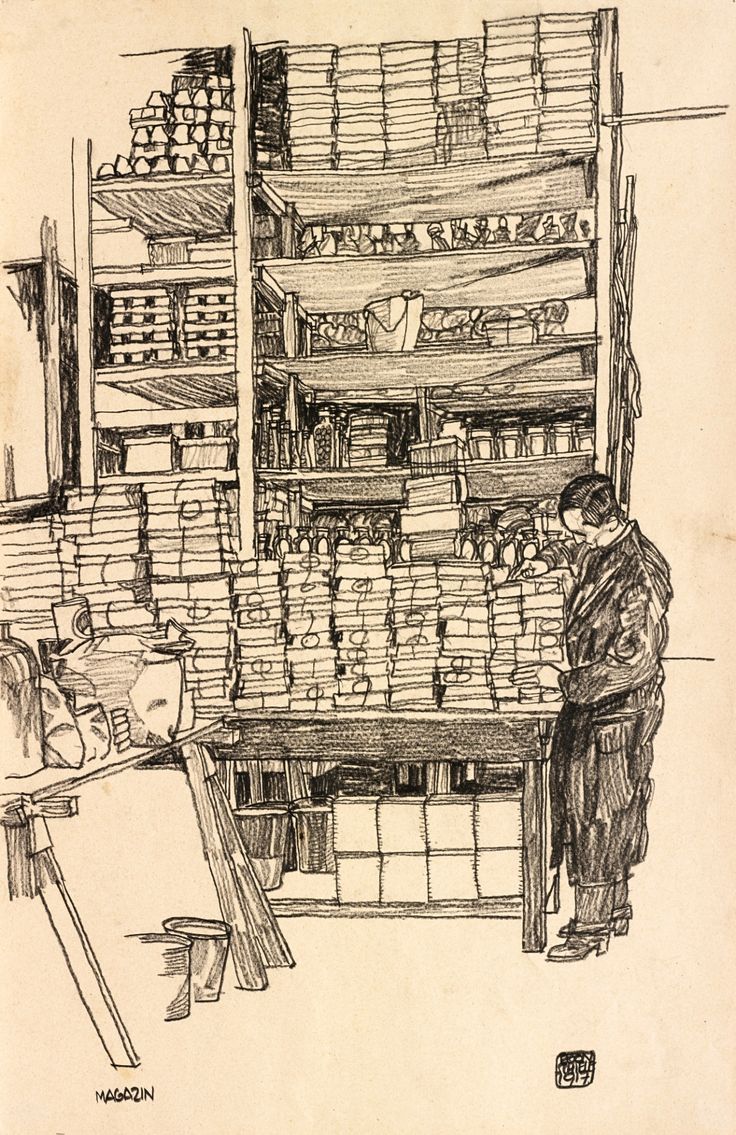 MAGAZIN
EGON
SCHIELE
1917